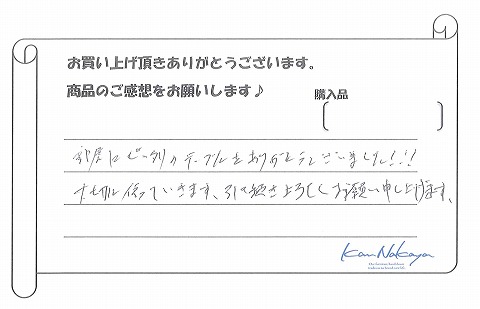 お買い上げ頂きありがとうございます。
商品のご感想をお願いします♪
購入品
部屋にピッタリのテーブルをありがとうございました!!!
大切に使っていきます、引き続きよろしくお願い申し上げます、
Kan Nakaya